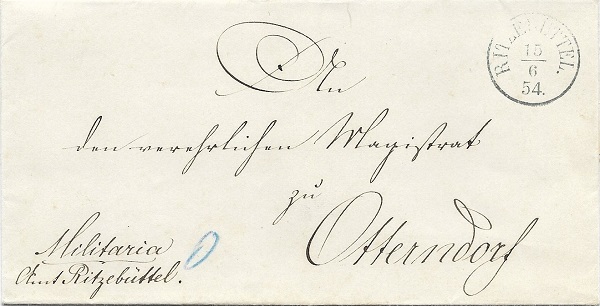 RITZEBÜTTEL.
15
6
54.
An
den verehrlichen Magistrat
zu
Otterndorf
Militaria
Amt Ritzebüttel.
0